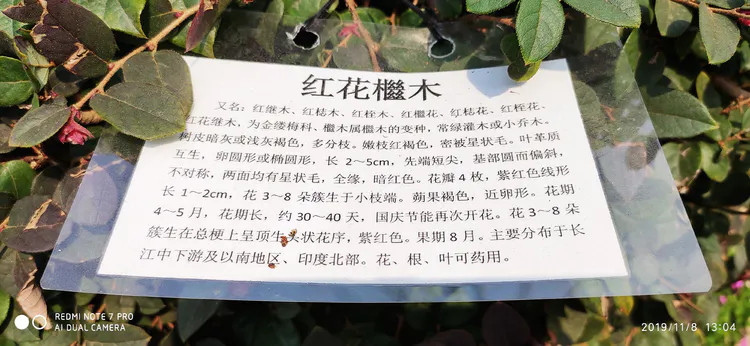 红花檵木
又名：红继木、红桎木、红桎木、红檵花、红桎花、红桎花、
红花继木，为金缕梅科、檵木属檵木的变种，常绿灌木或小乔木。
树皮暗灰或浅灰褐色，多分枝。嫩枝红褐色，密被星状毛。叶革质
互生，卵圆形或椭圆形，长 2～5cm，先端短尖，基部圆而偏斜，
不对称，两面均有星状毛，全缘，暗红色。花瓣 4 枚，紫红色线形
长 1～2cm，花 3～8 朵簇生于小枝端。蒴果褐色，近卵形。花期
4～5 月，花期长，约 30～40 天，国庆节能再次开花。花 3～8 朵
簇生在总梗上呈顶生头状花序，紫红色。果期 8 月。主要分布于长
江中下游及以南地区、印度北部。花、根、叶可药用。
REDMI NOTE 7 PRO
AI DUAL CAMERA
2019/11/8 13:04